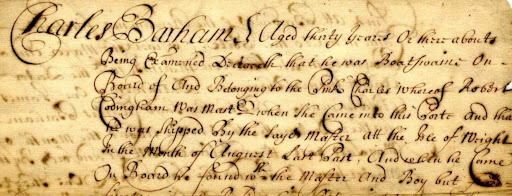 Charles Barham { Aged thirty Yeares Or there abouts
Being Examened Deposeth that he was Boatswaine On
Board of And Belonging to the Pink Charles whereof Robert
Codingham Was Mastr when she Came into this Porte And that
he was shipped By the Sayd Master Att the Isle of Wight
In the Month of Augusst Last Past, And when he Came
On Board he found no the Master And Boy but